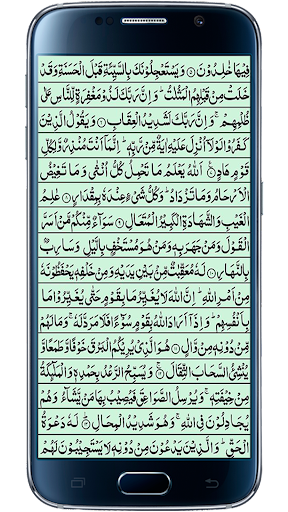 فِيْهَا خٰلِدُوْنَ ۝ وَيَسْتَعْجِلُوْنَكَ بِالسَّيِّئَةِ قَبْلَ الْحَسَنَةِ وَقَدْ
خَلَتْ مِنْ قَبْلِهِمُ الْمَثُلٰتُ ؕ وَاِنَّ رَبَّكَ لَذُوْ مَغْفِرَةٍ لِّلنَّاسِ عَلٰى
ظُلْمِهِمْ ۚ وَاِنَّ رَبَّكَ لَشَدِيْدُ الْعِقَابِ ۝ وَيَقُوْلُ الَّذِيْنَ
كَفَرُوْا لَوْلَاۤ اُنْزِلَ عَلَيْهِ اٰيَةٌ مِّنْ رَّبِّهٖ ؕ اِنَّمَاۤ اَنْتَ مُنْذِرٌ وَّلِكُلِّ
قَوْمٍ هَادٍ ۝ اَللّٰهُ يَعْلَمُ مَا تَحْمِلُ كُلُّ اُنْثٰى وَمَا تَغِيْضُ
الْاَرْحَامُ وَمَا تَزْدَادُ ؕ وَكُلُّ شَيْءٍ عِنْدَهٗ بِمِقْدَارٍ ۝ عٰلِمُ
الْغَيْبِ وَالشَّهَادَةِ الْكَبِيْرُ الْمُتَعَالِ ۝ سَوَآءٌ مِّنْكُمْ مَّنْ اَسَرَّ
الْقَوْلَ وَمَنْ جَهَرَ بِهٖ وَمَنْ هُوَ مُسْتَخْفٍۭ بِالَّيْلِ وَسَارِبٌۢ
بِالنَّهَارِ ۝ لَهٗ مُعَقِّبٰتٌ مِّنْۢ بَيْنِ يَدَيْهِ وَمِنْ خَلْفِهٖ يَحْفَظُوْنَهٗ
مِنْ اَمْرِ اللّٰهِ ؕ اِنَّ اللّٰهَ لَا يُغَيِّرُ مَا بِقَوْمٍ حَتّٰى يُغَيِّرُوْا مَا
بِاَنْفُسِهِمْ ؕ وَاِذَاۤ اَرَادَ اللّٰهُ بِقَوْمٍ سُوْٓءًا فَلَا مَرَدَّ لَهٗ ۚ وَمَا لَهُمْ
مِّنْ دُوْنِهٖ مِنْ وَّالٍ ۝ هُوَ الَّذِيْ يُرِيْكُمُ الْبَرْقَ خَوْفًا وَّطَمَعًا وَّ
يُنْشِئُ السَّحَابَ الثِّقَالَ ۝ وَيُسَبِّحُ الرَّعْدُ بِحَمْدِهٖ وَالْمَلٰٓئِكَةُ
مِنْ خِيْفَتِهٖ ۚ وَيُرْسِلُ الصَّوَاعِقَ فَيُصِيْبُ بِهَا مَنْ يَّشَآءُ وَهُمْ
يُجَادِلُوْنَ فِي اللّٰهِ ۚ وَهُوَ شَدِيْدُ الْمِحَالِ ۝ لَهٗ دَعْوَةُ
الْحَقِّ ؕ وَالَّذِيْنَ يَدْعُوْنَ مِنْ دُوْنِهٖ لَا يَسْتَجِيْبُوْنَ لَهُمْ